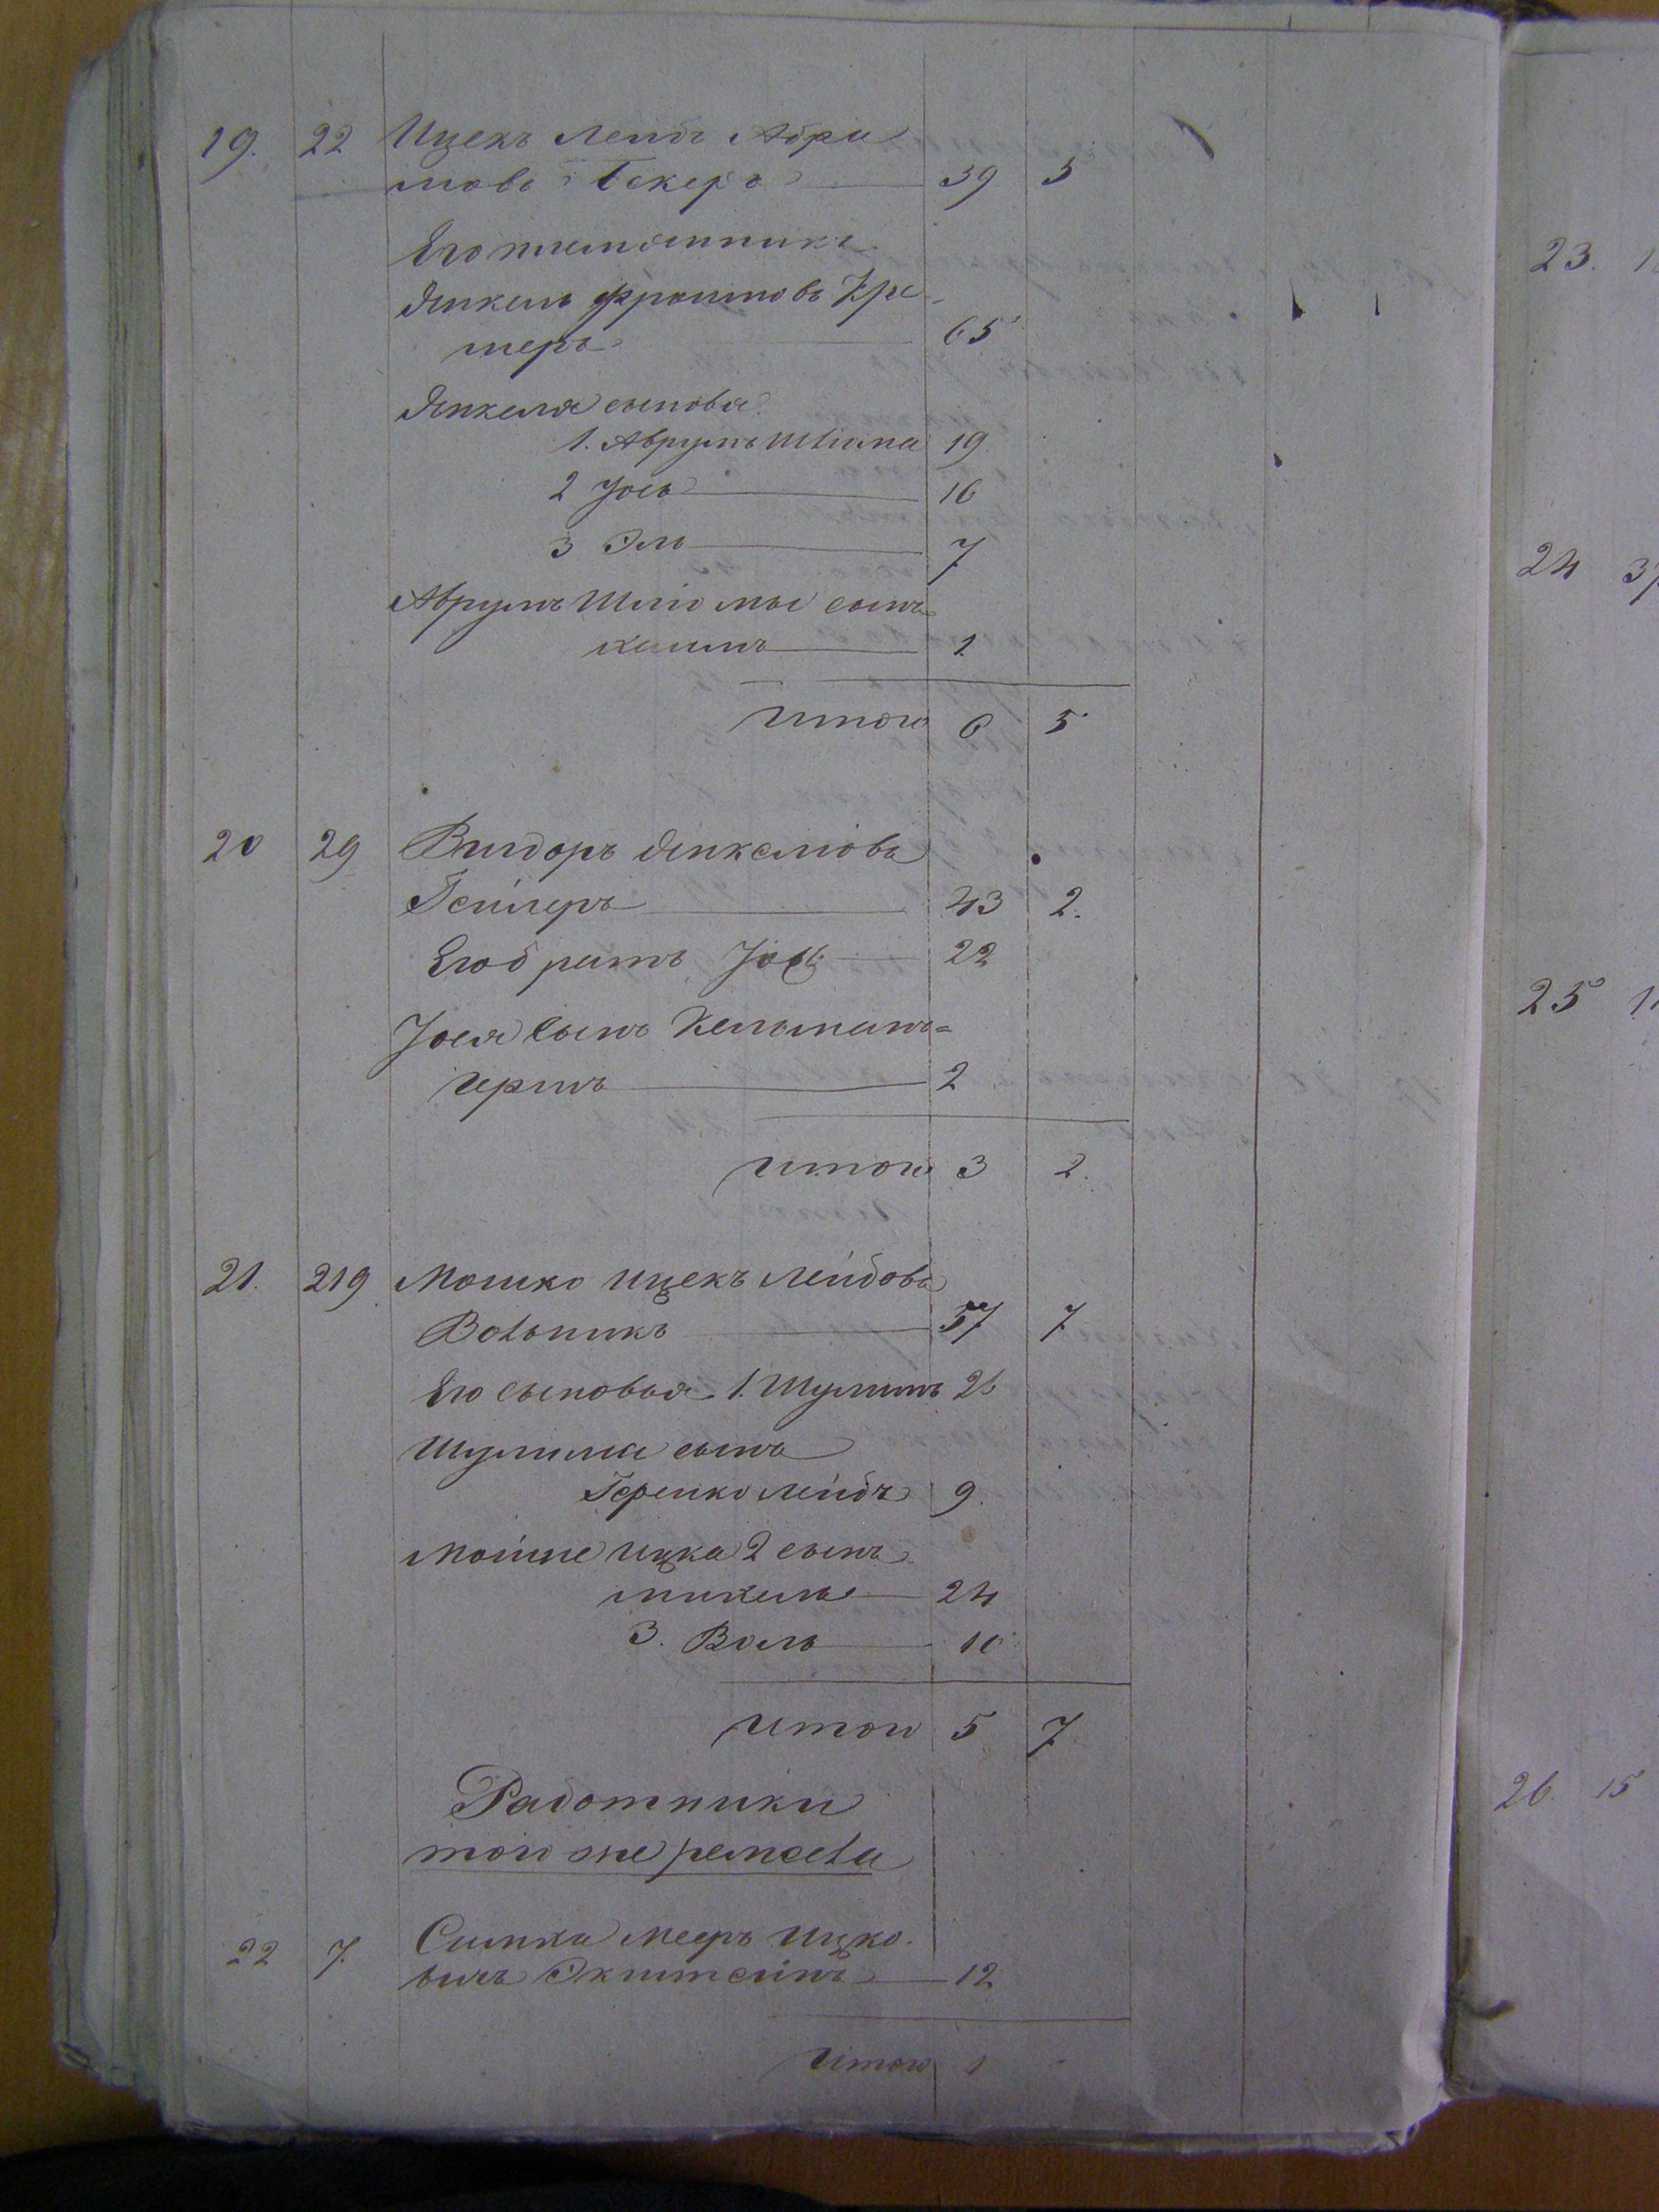 19. 22 Ицекъ Лейбъ Абра
мовъ Бекеръ 39 5
Его племянникъ
Янкель Фроимовъ Кре-
меръ 65
Янкеля сыновья
1. Аврумъ Шлiома 19
2 Iось 16
3 Эль 7
Аврумъ Шлiомы сынъ
Хаимъ 1
Итого 6 5
20 29 Вигдоръ Янкелiовъ
Гейлеръ 43 2.
Его братъ Iось 22
Iося Сынъ Кельманъ=
Гершъ 2
Итого 3 2.
21. 219 Мошко Ицекъ Лейбовъ
57 7
Его сыновья 1. Шулимъ 26
Шулима сынъ
Гершко Лейбъ 9.
Мошке Ицка 2 сынъ
Михель 24
3. Воль 10
Итого 5 7
Работники
того же ремесла
22 7. Симха Мееръ Ицко-
вичъ Экштейнъ 12
Итого 1
23.
24
25
26. 15